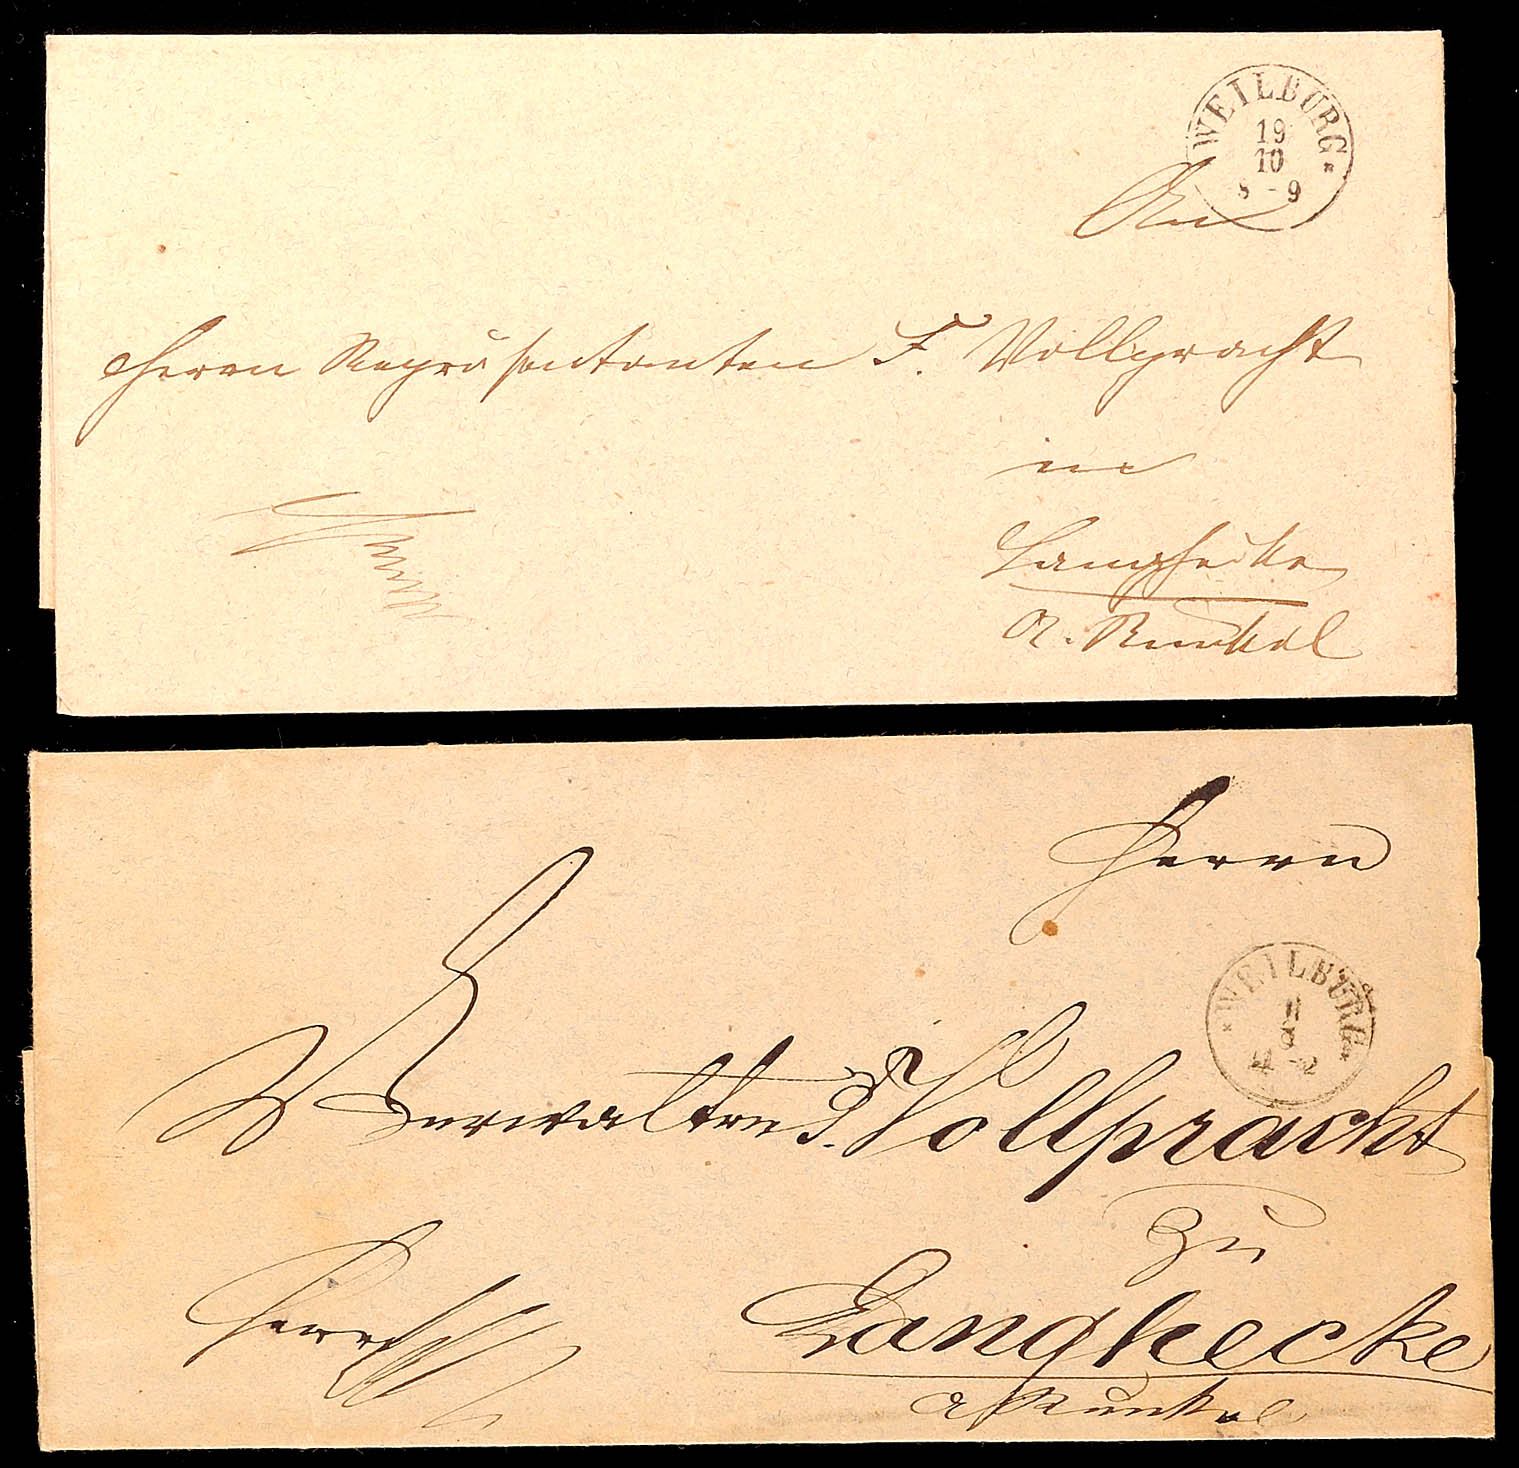 WEILBURG*
19
10
8-9
An
Herrn Repräsentanten F. Vollpracht
in
Langhecke
A. Runkel
Herrn
*WEILBURG*
11
8
Verwalter F. Vollpracht
zu
Langhecke
A Runkel